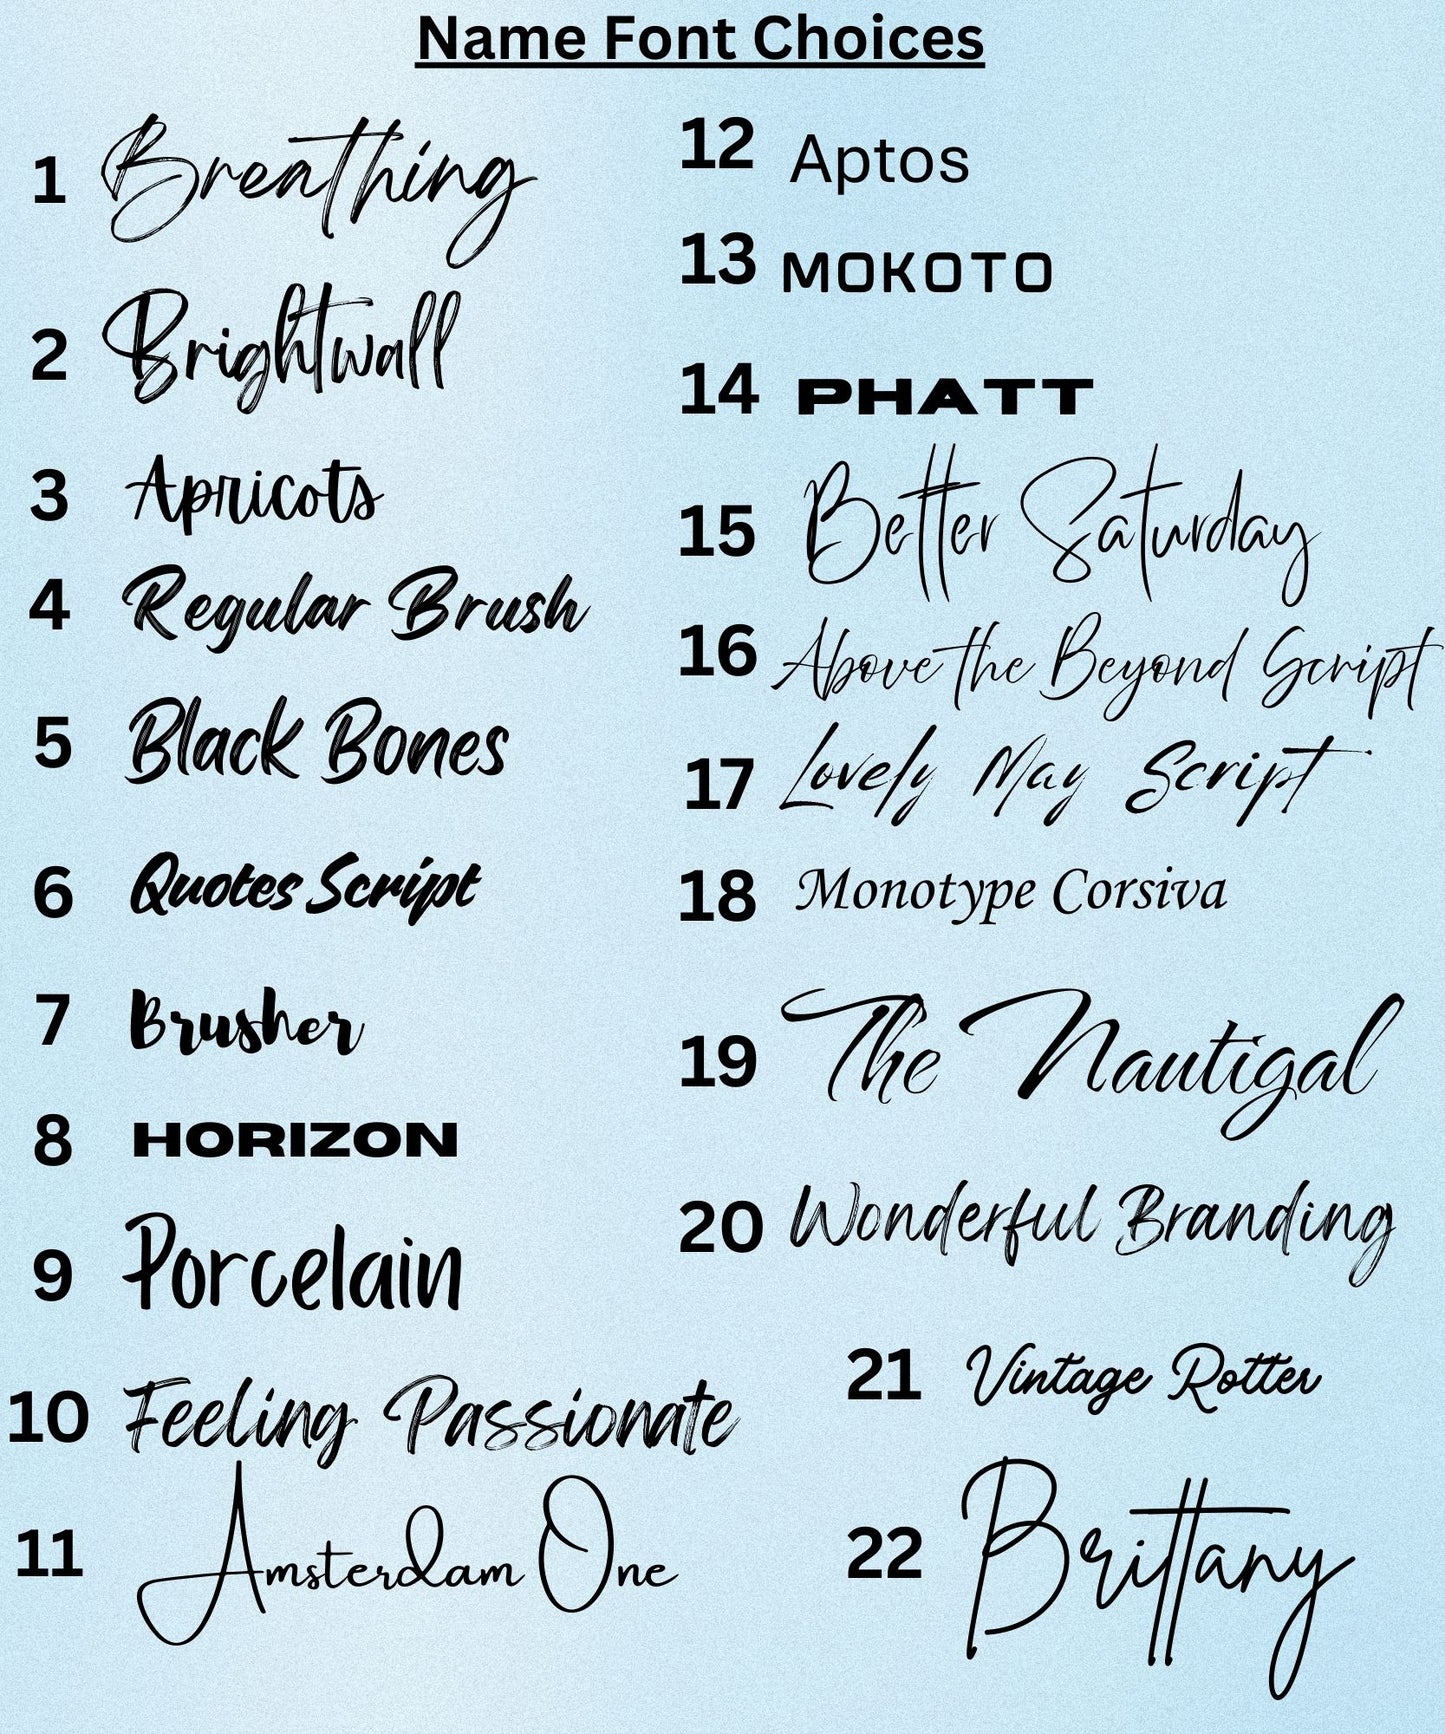 Name Font Choices
1 Breathing
2 Brightwall
3 Apricots
4 Regular Brush
5 Black Bones
6 Quotes Script
7 Brusher
8 HORIZON
9 Porcelain
10 Feeling Passionate
11 Amsterdam One
12 Aptos
13 MOKOTO
14 PHATT
15 Better Saturday
16 Above the Beyond Script
17 Lovely May Script
18 Monotype Corsiva
19 The Nautigal
20 Wonderful Branding
21 Vintage Rotter
22 Brittany